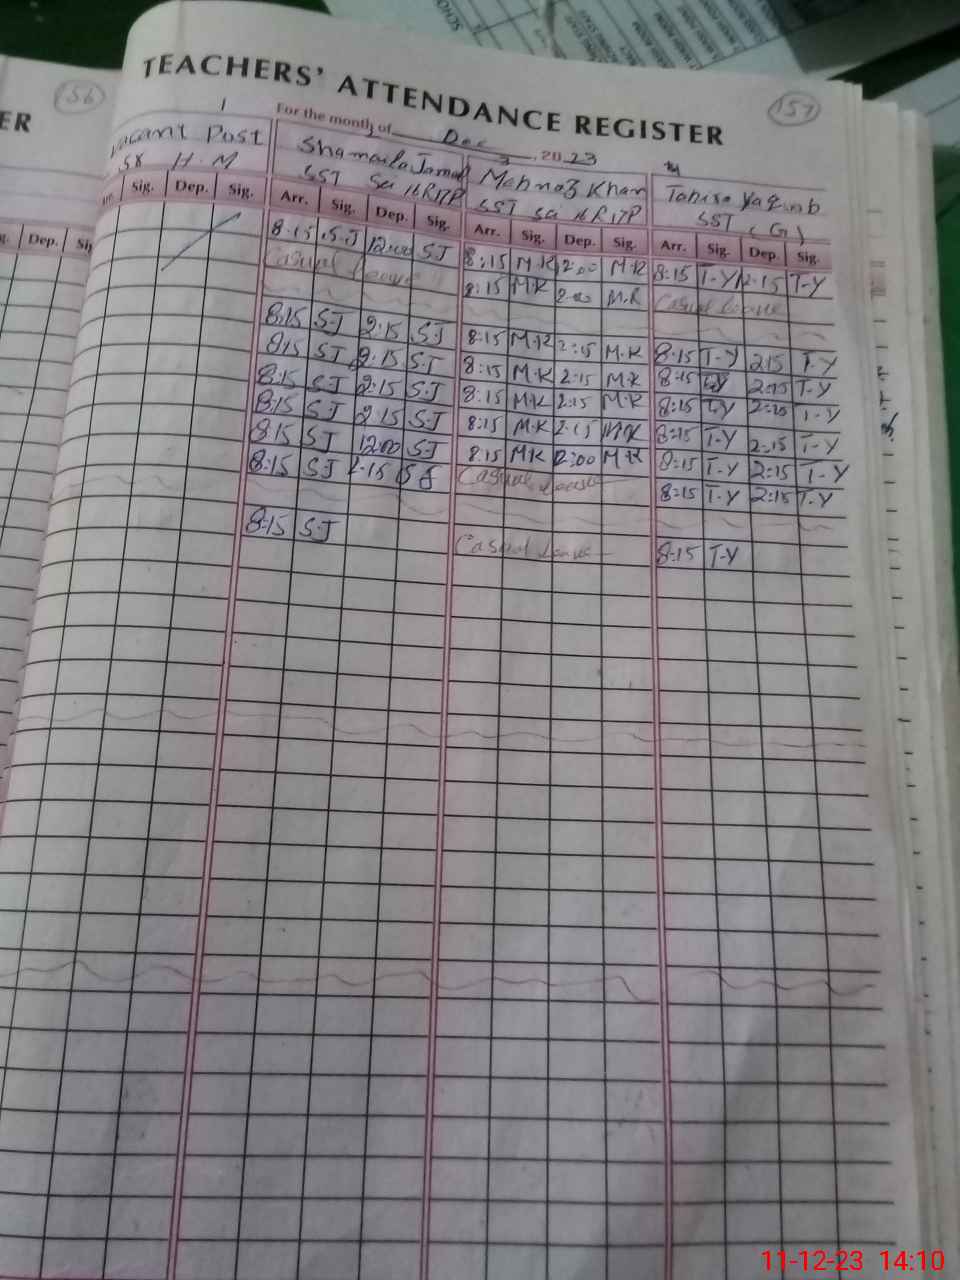 TEACHERS' ATTENDANCE REGISTER
156
157
ER
For the month of Dec 2023
1
2
3
Vacant Post
SST H.M
Shamaila Jamal
SST Sci 16 R17P
Mehnaz Khan
SST Sci 16 R17P
SST (G)
Dep. Sig. Dep. Sig.
Arr. Sig. Dep. Sig. Arr. Sig. Dep. Sig. Arr. Sig. Dep. Sig.
8:15 S.J 12:00 S.J 8:15 M.K 12:00 M.K 8:15 T-Y 12:15 T-Y
Casual Leave 8:15 M.K 2:00 M.K Casual Leave
8:15 S.J 2:15 S.J 8:15 M.K 2:15 M.K 8:15 T-Y 2:15 T-Y
8:15 S.J 2:15 S.J 8:15 M.K 2:15 M.K 8:15 T-Y 2:15 T-Y
8:15 S.J 2:15 S.J 8:15 M.K 2:15 M.K 8:15 T-Y 2:15 T-Y
8:15 S.J 2:15 S.J 8:15 M.K 2:15 M.K 8:15 T-Y 2:15 T-Y
8:15 S.J 12:00 S.J 8:15 M.K 12:00 M.K 8:15 T-Y 2:15 T-Y
8:15 S.J 2:15 Casual Leave 8:15 T-Y 2:15 T-Y
8:15 S.J Casual Leave 8:15 T-Y
11-12-23 14:10